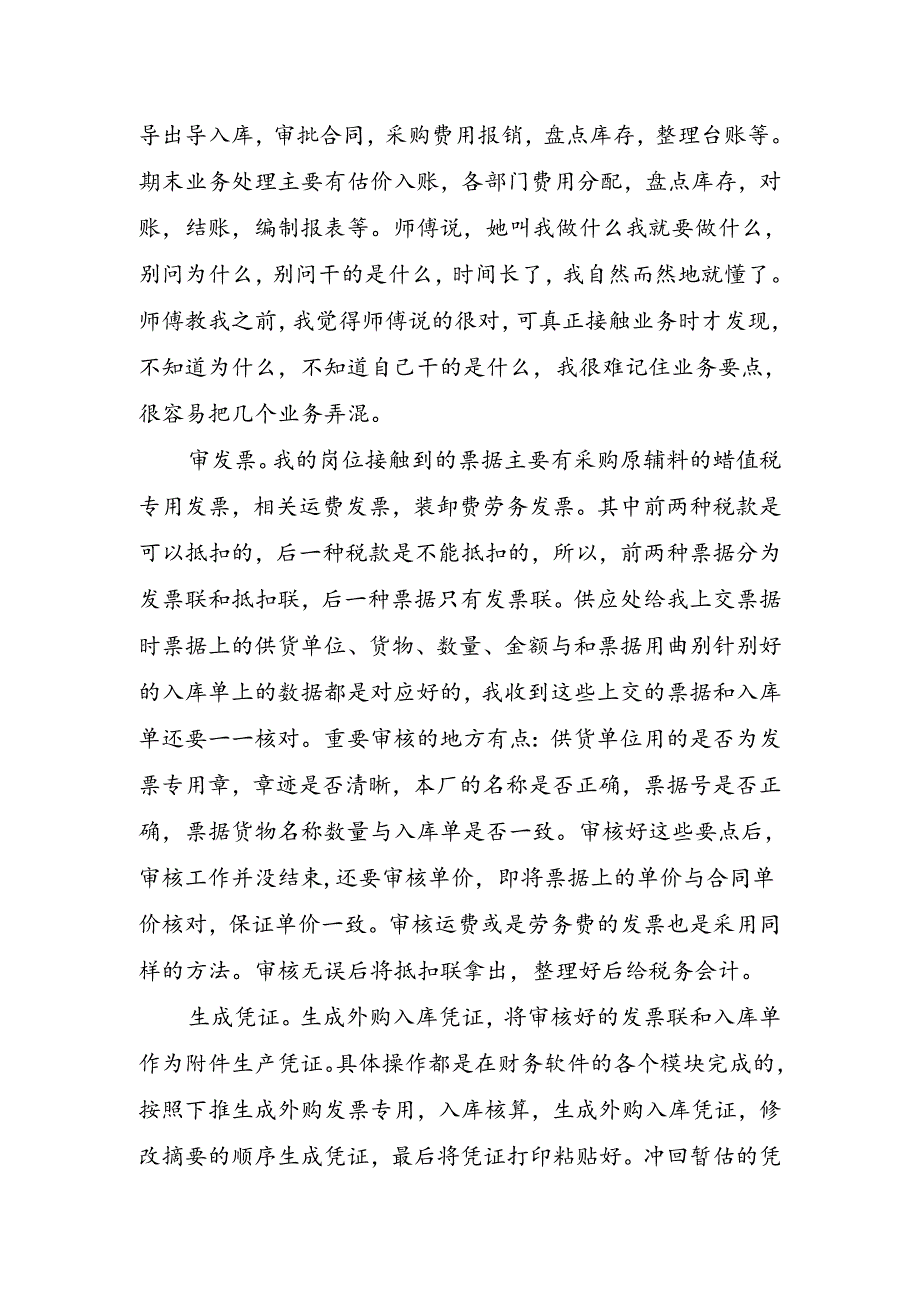 导出导入库，审批合同，采购费用报销，盘点库存，整理台账等。
期末业务处理主要有估价入账，各部门费用分配，盘点库存，对
账，结账，编制报表等。师傅说，她叫我做什么我就要做什么，
别问为什么，别问干的是什么，时间长了，我自然而然地就懂了。
师傅教我之前，我觉得师傅说的很对，可真正接触业务时才发现，
不知道为什么，不知道自己干的是什么，我很难记住业务要点，
很容易把几个业务弄混。
审发票。我的岗位接触到的票据主要有采购原辅料的蜡值税
专用发票，相关运费发票，装卸费劳务发票。其中前两种税款是
可以抵扣的，后一种税款是不能抵扣的，所以，前两种票据分为
发票联和抵扣联，后一种票据只有发票联。供应处给我上交票据
时票据上的供货单位、货物、数量、金额与和票据用曲别针别好
的入库单上的数据都是对应好的，我收到这些上交的票据和入库
单还要一一核对。重要审核的地方有点：供货单位用的是否为发
票专用章，章迹是否清晰，本厂的名称是否正确，票据号是否正
确，票据货物名称数量与入库单是否一致。审核好这些要点后，
审核工作并没结束,还要审核单价，即将票据上的单价与合同单
价核对，保证单价一致。审核运费或是劳务费的发票也是采用同
样的方法。审核无误后将抵扣联拿出，整理好后给税务会计。
生成凭证。生成外购入库凭证，将审核好的发票联和入库单
作为附件生产凭证。具体操作都是在财务软件的各个模块完成的，
按照下推生成外购发票专用，入库核算，生成外购入库凭证，修
改摘要的顺序生成凭证，最后将凭证打印粘贴好。冲回暂估的凭